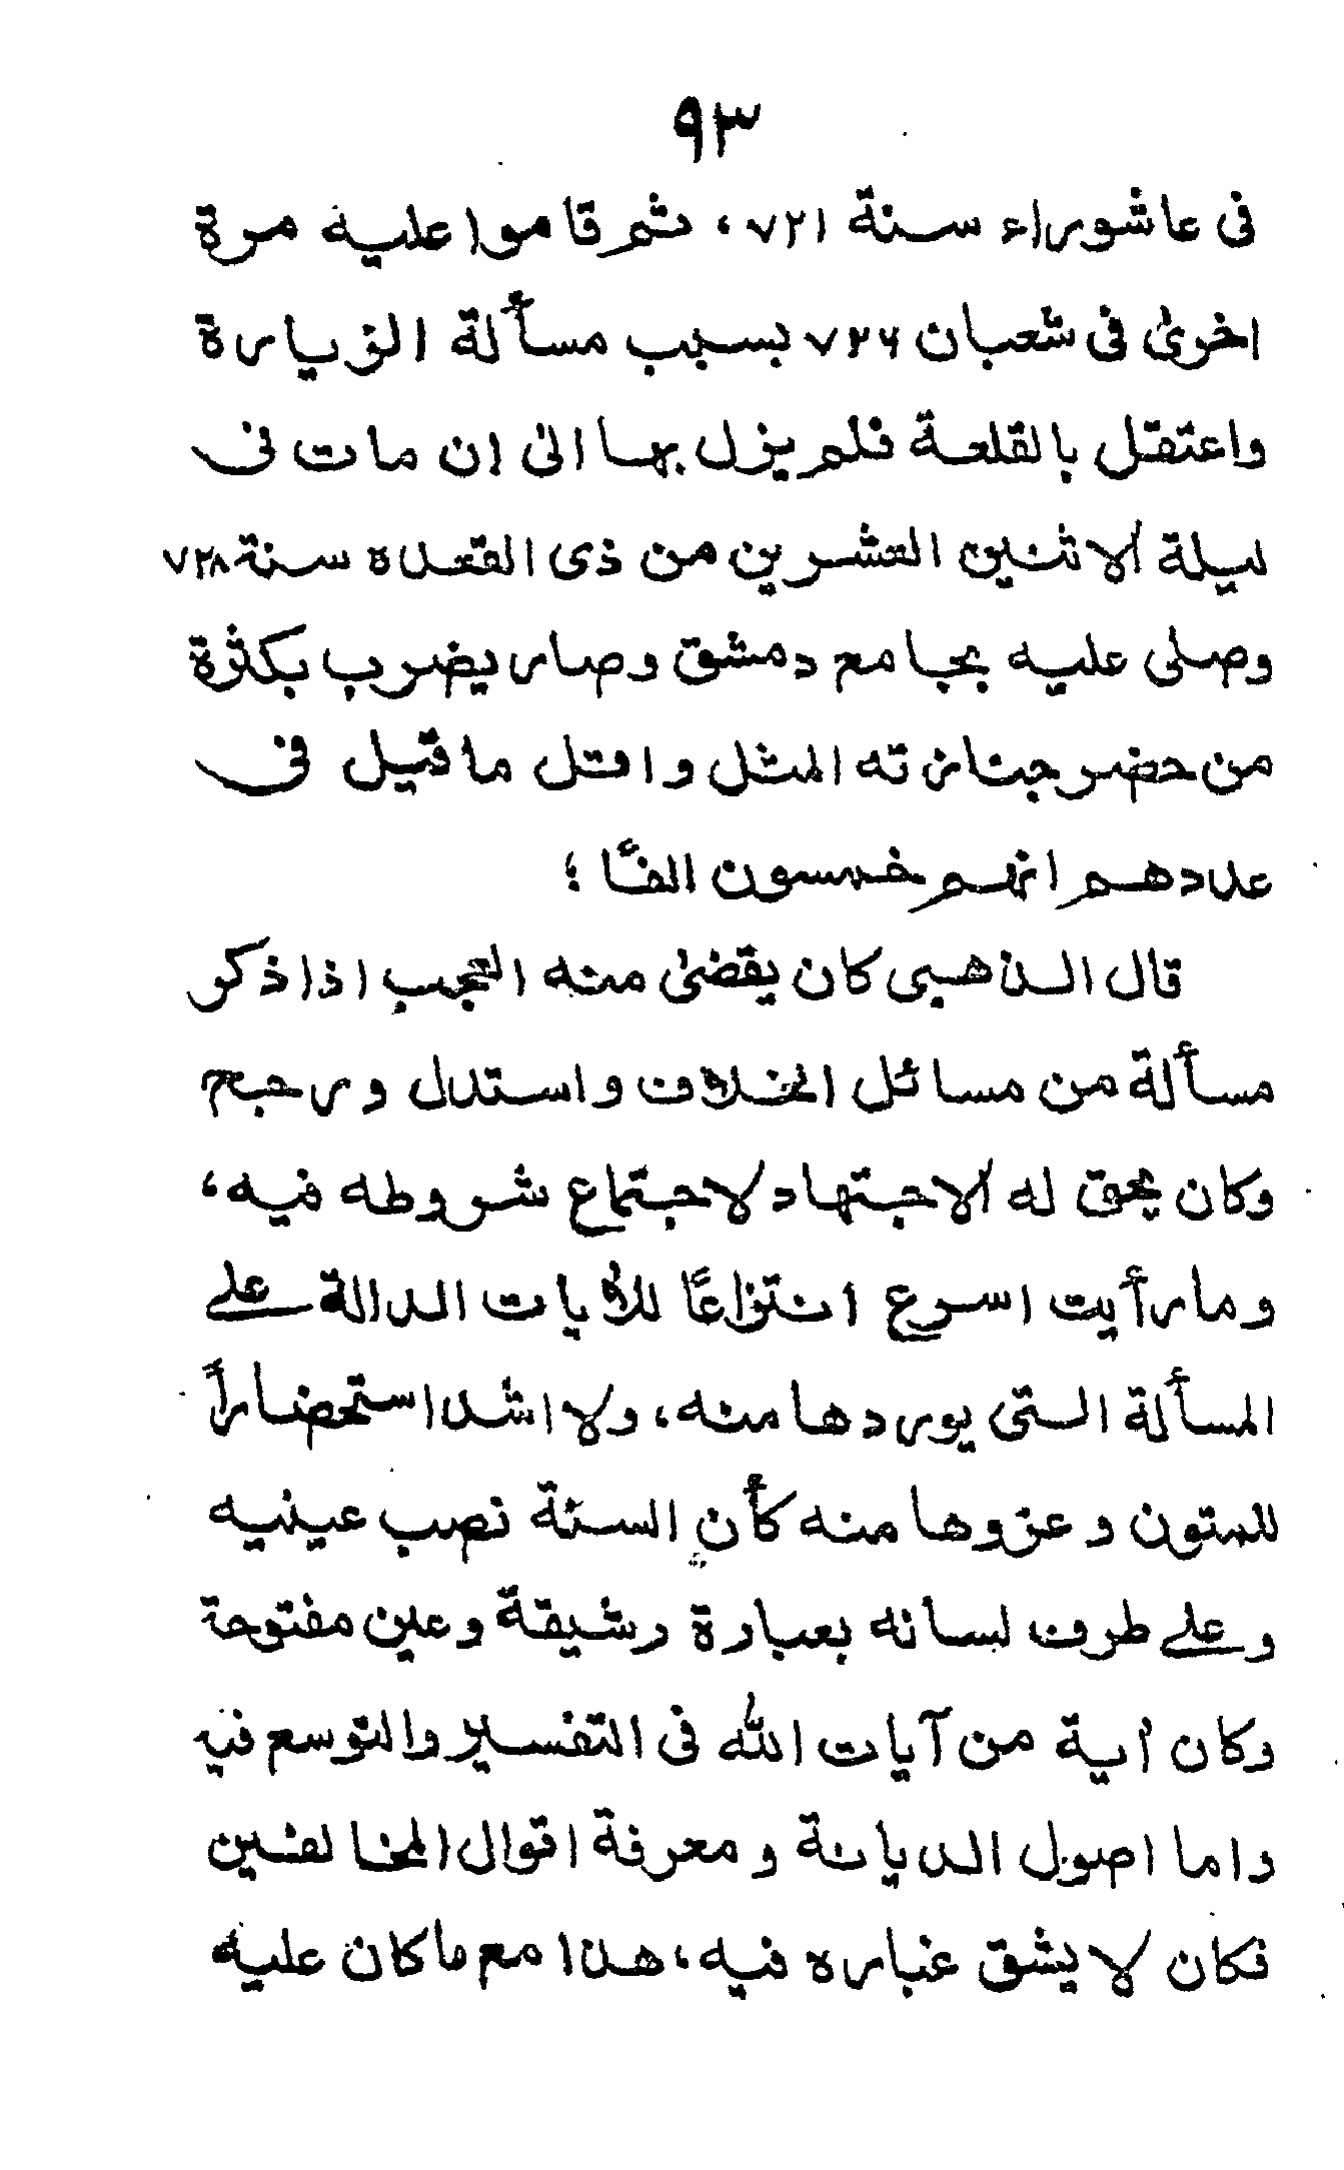 ٩٣
فى عاشوراء سنة ٧٢١، ثم قاموا عليه مرة
اخرىٰ فى شعبان ٧٢٦ بسبب مسألة الزيارة
واعتقل بالقلعة فلم يزل بها الىٰ ان مات فى
ليلة الاثنين العشرين من ذى القعده سنة ٧٢٨
وصلى عليه بجامع دمشق وصار يضرب بكثرة
من حضر جنازته المثل واقتل ما قيل فى
عددهم انهم خمسون الفًا ؛
قال الذهبى كان يقضىٰ منه العجب اذا ذكر
مسألة من مسائل الخلاف واستدل ورجح
وكان يحق له الاجتهاد لاجتماع شروطه فيه،
وما رأيت اسرع انتزاعًا للأيات الدالة على
المسألة التى يوردها منه، ولا اشد استحضاراً
للمتون وعزوها منه كأن السنة نصب عينيه
وعلى طرف لسانه بعبارة رشيقة وعين مفتوحة
وكان أية من آيات الله فى التفسير والتوسع فيه
واما اصول الديانة ومعرفة اقوال المخالفين
فكان لا يشق غباره فيه، هذا مع ما كان عليه